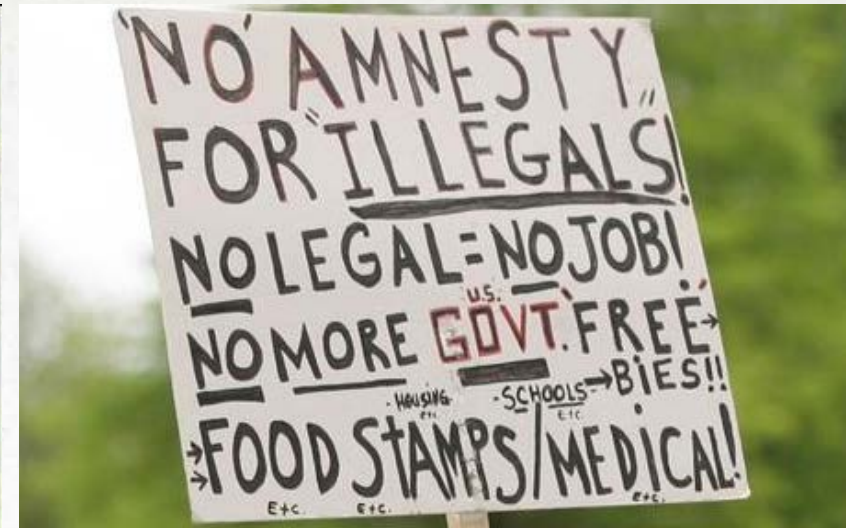 'NO' AMNESTY
FOR "ILLEGALS"!
NO LEGAL = NO JOB!
U.S.
NO MORE GOVT. 'FREE'→
→BiES!!
-HOUSING- -SCHOOLS-
etc. Etc.
→FOOD StAMPS/MEDiCAL!
Etc. Etc. etc.